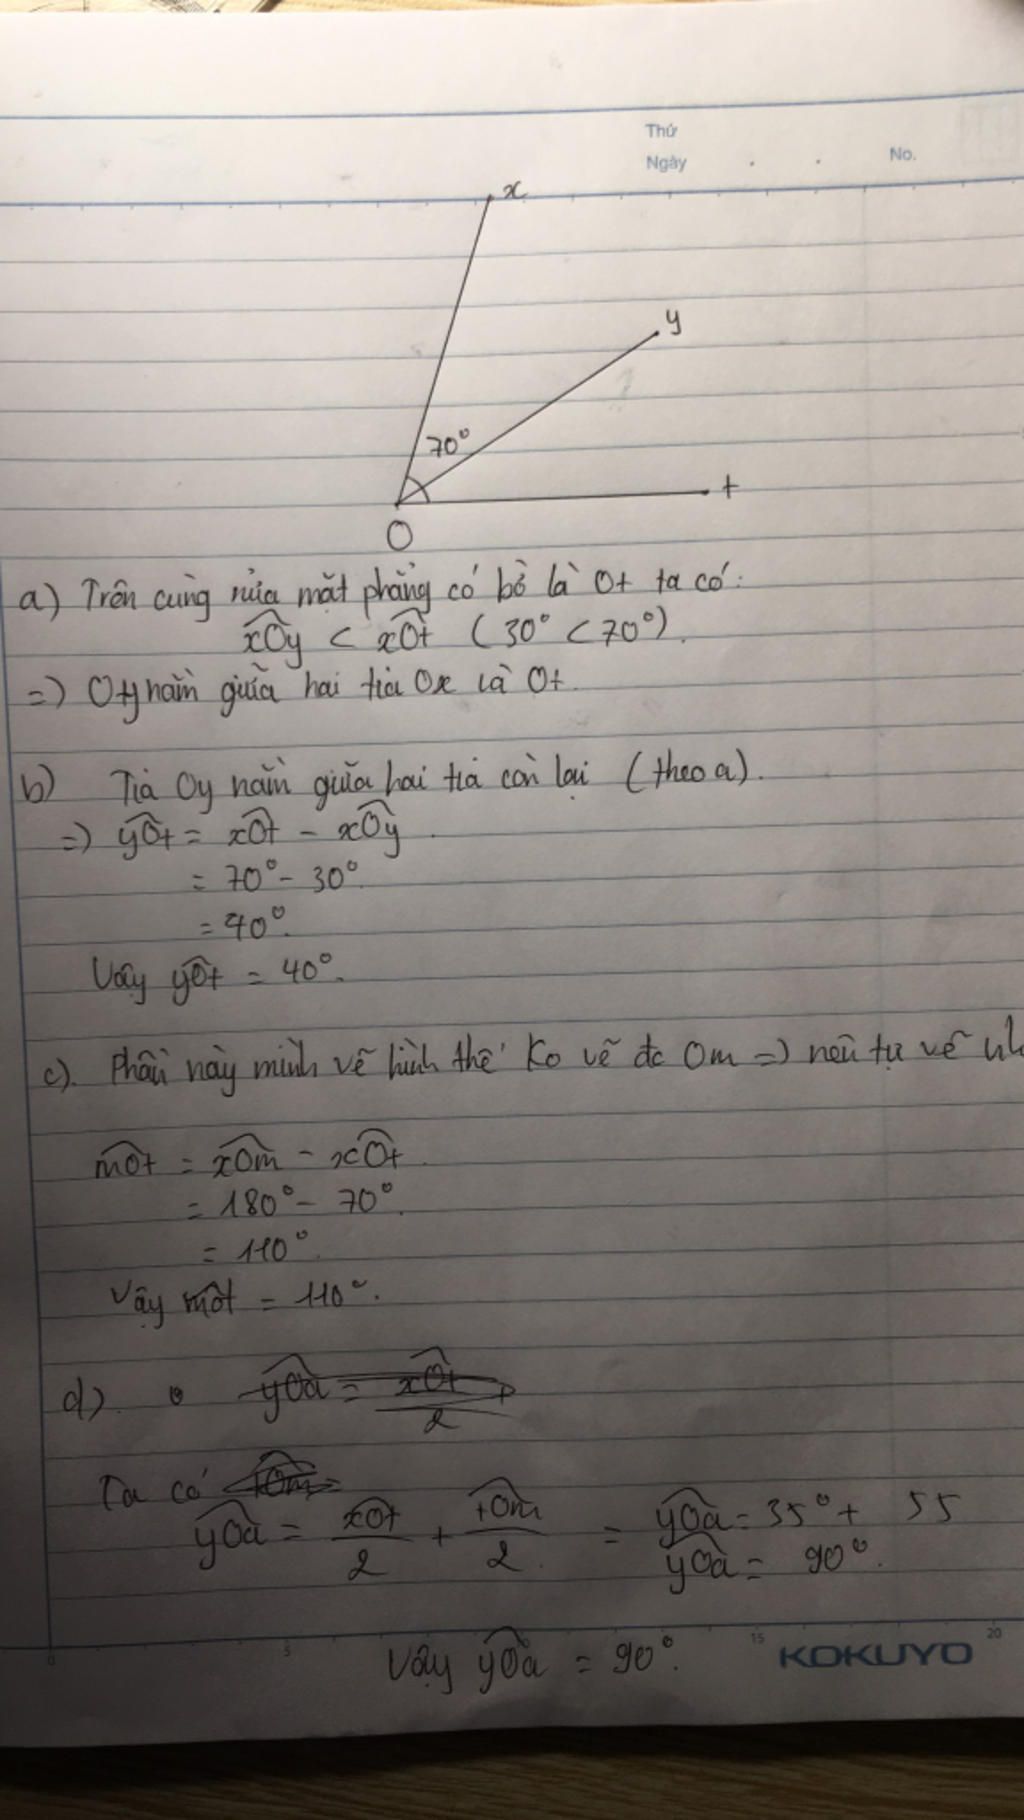 Thứ
Ngày . . No.
x
y
70°
t
O
a) Trên cùng nửa mặt phẳng có bờ là Ot ta có:
xÔy < xÔt (30° < 70°).
=> Oy nằm giữa hai tia Ox là Ot.
b) Tia Oy nằm giữa hai tia còn lại (theo a).
=> yÔt = xÔt - xÔy.
= 70° - 30°.
= 40°.
Vậy yÔt = 40°.
c). Phần này mình vẽ hình thế ko vẽ đc Om => nên tự vẽ
mÔt = xÔm - xÔt.
= 180° - 70°.
= 110°.
Vậy mÔt = 110°.
d). yÔa = xÔt / 2
Ta có tÔm =
yÔa = xÔt / 2 + tÔm / 2. = yÔa = 35° + 55
yÔa = 90°.
Vậy yÔa = 90°.
0 5 15 20
KOKUYO